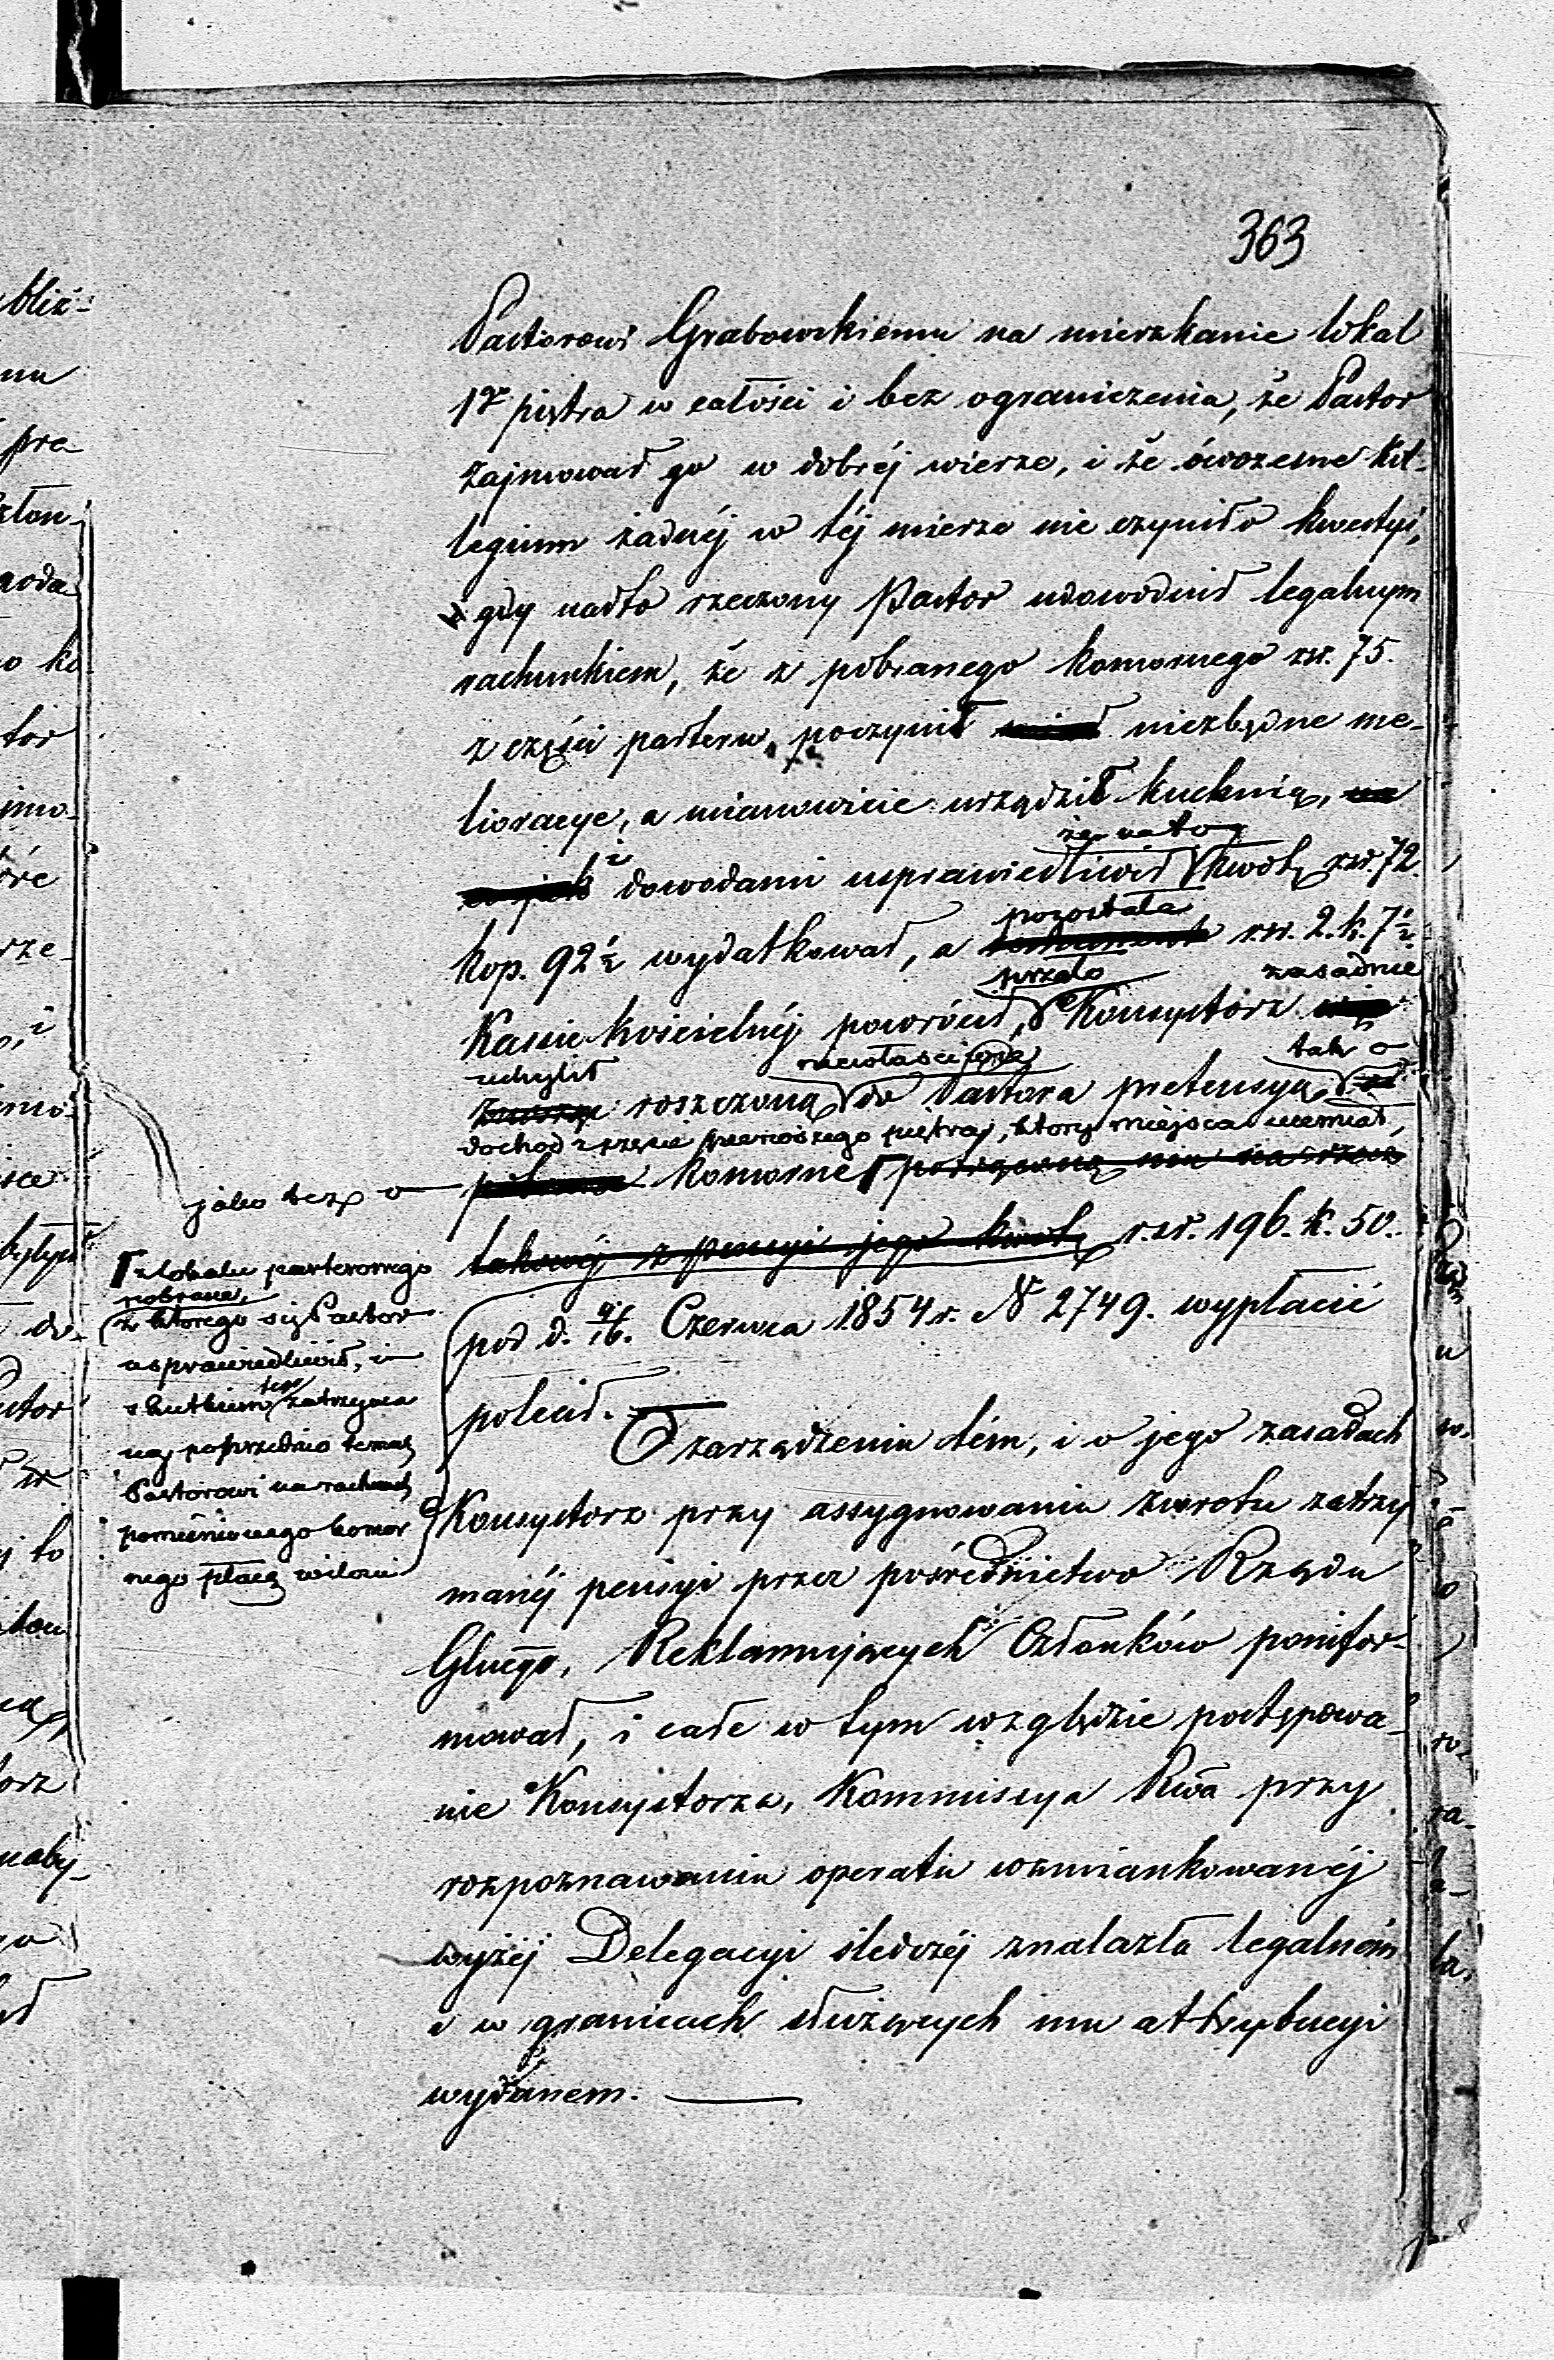 363
Pastorowi Grabowskiemu na mieszkanie lokal
1go piętra w całości i bez ograniczenia, że Pastor
zajmował go w dobréj wierze, i że ówczesne Kol-
legium żadnéj w téj mierze nie czyniło kwestyi,
gdy nadto rzeczony Pastor udowodnił legalnym
rachunkiem, że z pobranego komornego rsr. 75.
z części parteru, poczynił niezbędne me-
lioracye, a mianowicie urządził kuchnią,
że na to
i dowodami usprawiedliwił kwotę rsr. 72.
pozostała
kop. 92½ wydatkował, a rsr. 2. k. 7½
przeto zasadnie
Kassie kościelnéj powrócił, Konsystorz
uchylił niewłaściwie tak o
roszczoną do Pastora pretensyą
dochód z części pierwszego piętra, który miejsca niemiał,
jako też o komorne
takowéj z pensyi jego kwotę rsr. 196. k. 50.
Γ z lokalu parterowego
pobrane,
z którego się Pastor
usprawiedliwił, i
skutkiem tego zatrzyma
ną poprzednio temuż
Pastorowi na rachunek
pomienionego komor
nego płacę w ilości
pod d. 4/16. Czerwca 1854 r. N 2749. wypłacić
polecił.
O zarządzeniu tém, i o jego zasadach
Konsystorz przy assygnowaniu zwrotu zatrzy
manéj pensyi przez pośrednictwo Rządu
Glnego, Reklamujących Członków poinfor-
mował, i całe w tym względzie postępowa-
nie Konsystorza, Kommissya Rwa przy
rozpoznawaniu operatu wzmiankowanéj
wyżéj Delegacyi śledczéj znalazła legalném
i w granicach służących mu attrybucyi
wydanem.